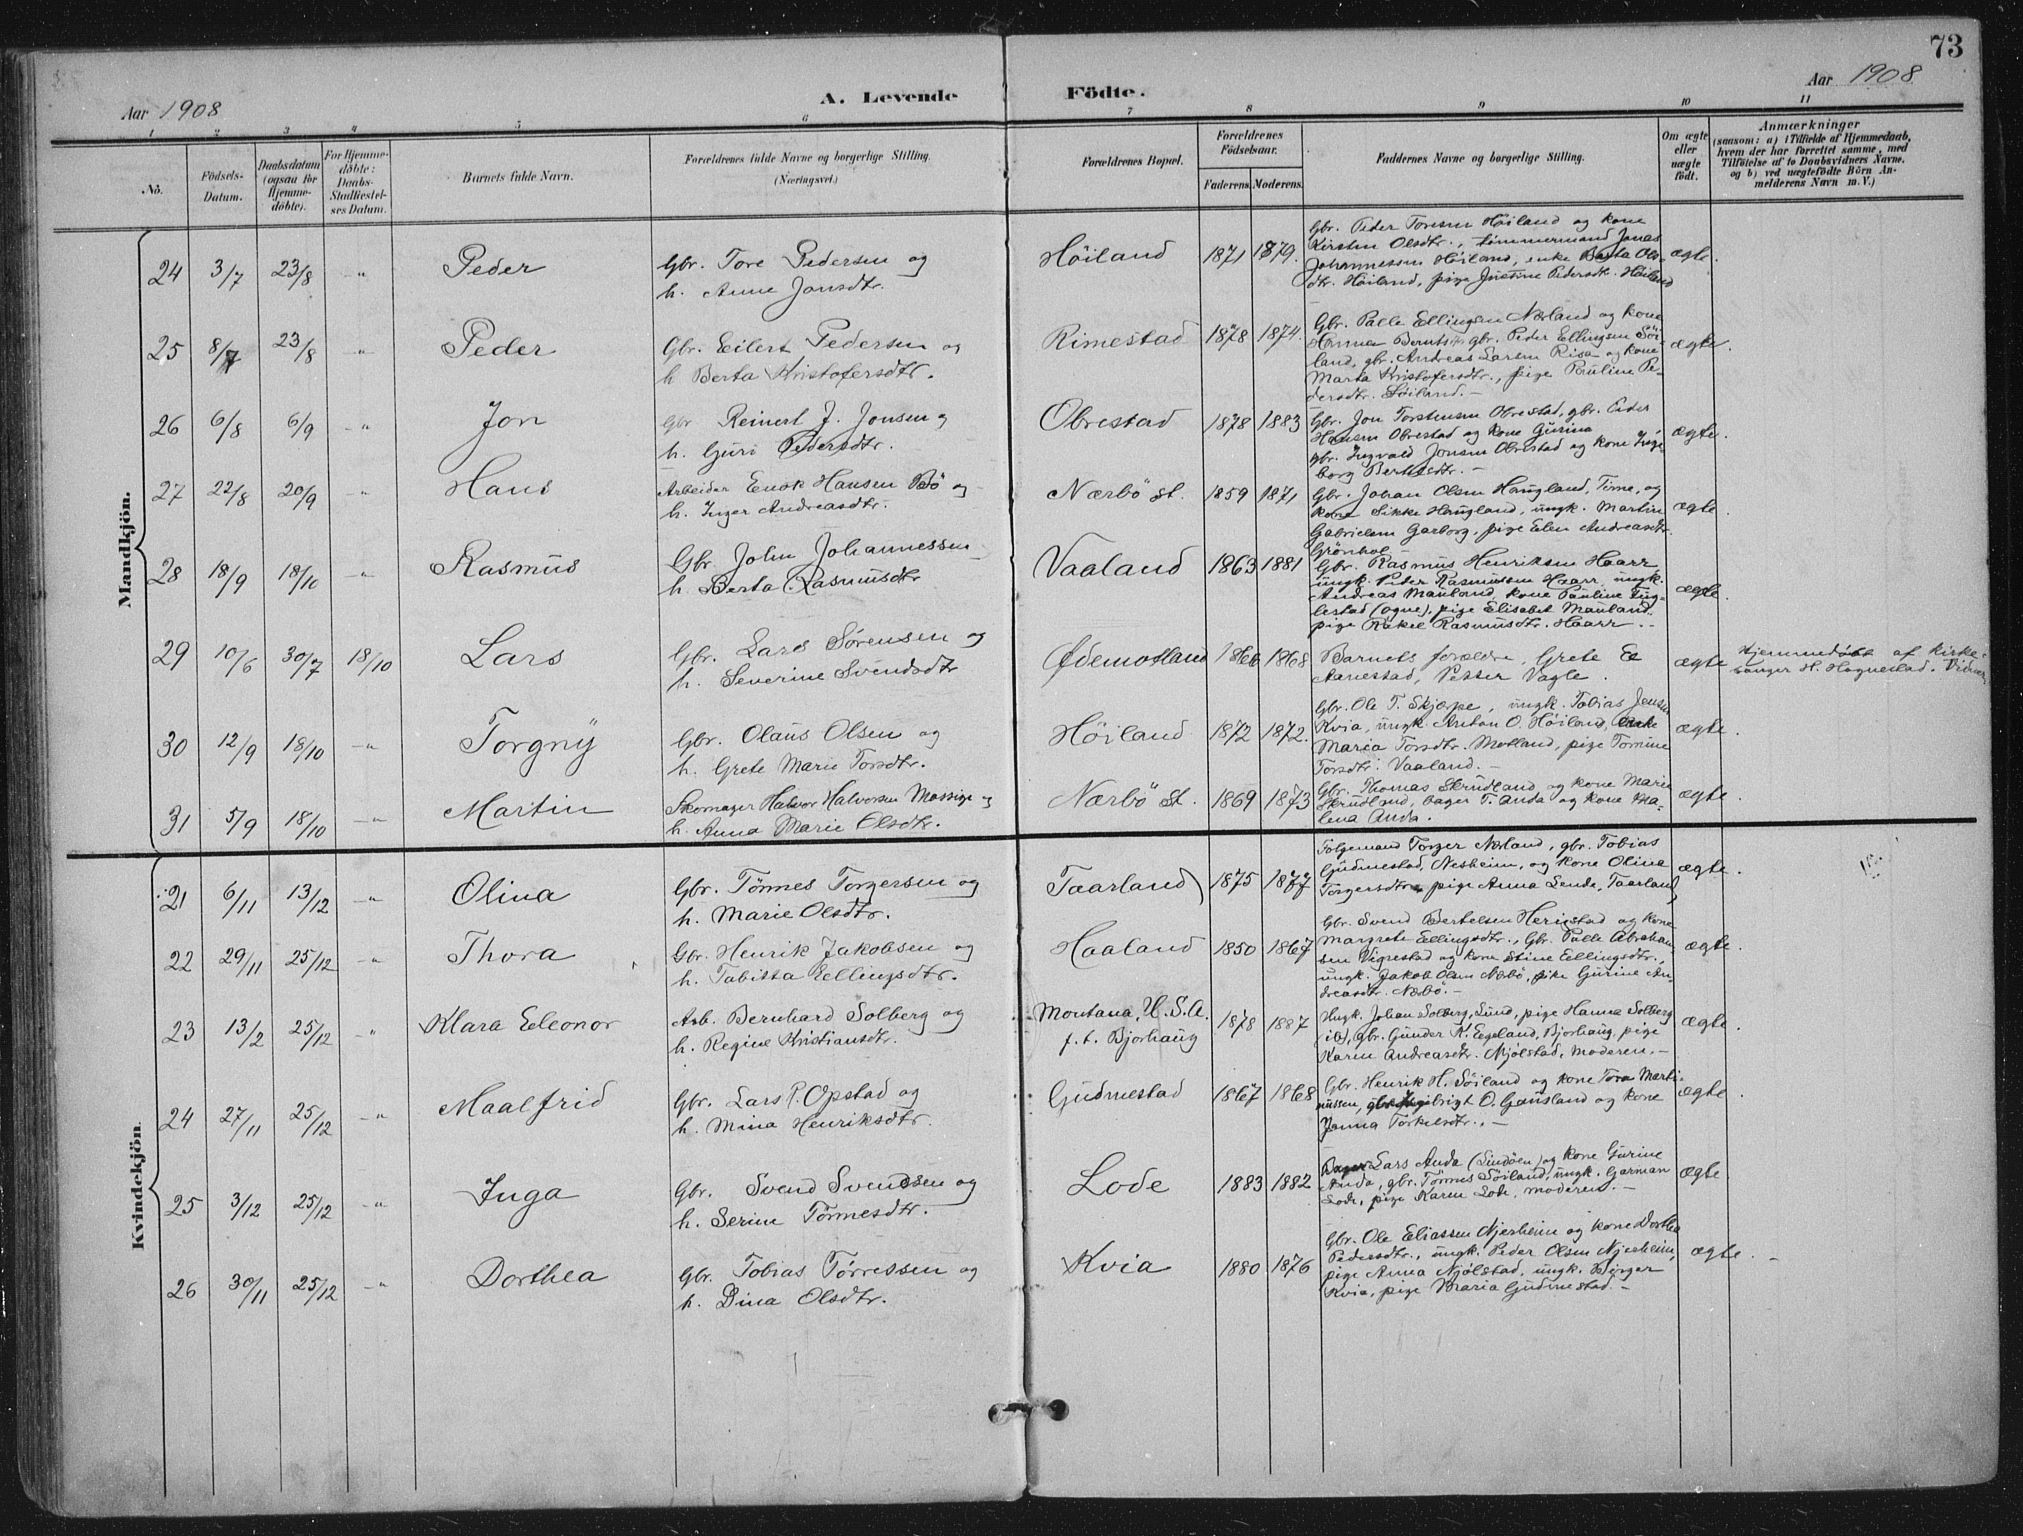 73
Aar 1908
A. Levende Födte.
Aar 1908
1 2 3 4 5 6 7 8 9 10 11
No.
Födsels-Datum.
Daabsdatum (ogsaa for Hjemmedöbte).
For Hjemmedöbte: Daabs-Stadfæstelses Datum.
Barnets fulde Navn.
Forældrenes fulde Navne og borgerlige Stilling.
(Næringsvei.)
Forældrenes Bopæl.
Forældrenes Födselsaar.
Faderens. Moderens.
Faddernes Navne og borgerlige Stilling.
Om ægte eller uægte födt.
Anmærkninger
(saasom: a) i Tilfælde af Hjemmedaab,
hvem der har forrettet samme, med
Tilföielse af to Daabsvidners Navne.
og b) ved uægtefödte Börn An-
melderens Navn m. V.)
Mandkjön.
24 3/7 23/8 -"- Peder Gbr. Tore Pedersen og
h. Anne Jonsdtr.
Höiland 1871 1879.
Gbr. Peder Tonsen Höiland og kone
Kirsten Olsdtr., tömmermand Jonas
Johannessen Höiland, enke Berta Ols-
dtr. Höiland, pige Justine Pedersdt. Höiland
ægte.
25 8/7 23/8 -"- Peder Gbr. Eilert Pedersen og
h Berta Kristofersdtr.
Rimestad 1878 1874.
Gbr. Palle Ellingsen Nærland og kone
Hanna gbr. Peder Ellingsen Söi-
land, gbr. Andreas Larsen Risa og kone
Marta Kristofersdtr., pige Pauline Pe-
dersdtr. Söiland.-
ægte.
26 6/8 6/9 -"- Jon Gbr Reinert J. Jonsen og
h. Guri Pedersdtr.
Obrestad 1878 1883
Gbr. Jon Torstensen Obrestad, gbr. Peder
Hansen Obrestad og kone Gurina
gbr. Ingvald Jonsen Obrestad og kone Inge
borg Bertesdtr. -
ægte.
27 22/8 20/9 -"- Hans Arbeider Enok Hansen Bö og
h. Inger Andreasdtr.
Nærbö st. 1859 1871
Gbr. Johan Olsen Haugland, Time, og
kone Sikke Haugland, ungk. Martin
Gabrielsen Garborg, pige Elen Andreasdtr.
Grönhol -
ægte.
28 18/9 18/10 -"- Rasmus Gbr. John Johannessen
h. Berta Rasmusdtr
Vaaland 1863 1881
Gbr. Rasmus Henriksen Haarr
ungk. Peder Rasmussen Haarr, ungk.
Andreas Mauland, kone Pauline Fug-
lestad (ogne), pige Elisabet Mauland,
pige Rakel Rasmusdtr. Haarr. -
ægte.
29 10/6 30/7 18/10 Lars Gbr. Lars Sörensen og
h. Severine Svendsdtr
Ødemotland 1866 1868
Barnets forældre, Grete E
Aanestad, Petter Vagle.
ægte
Hjemmedöbt af kirke-
sanger H. Hognestad.
30 12/9 18/10 -"- Torgny Gbr. Olaus Olsen og
h. Grete Marie Torsdtr.
Höiland 1872 1872.
Gbr. Ole T. Skjæpe, ungk. Tobias Jensen
Kvia, ungk. Anton O. Höiland, enke
Maria Torsdtr. Motland, pige Tomine
Torsdtr. Vaaland. -
ægte.
31 5/9 18/10 -"- Martin Skomager Halvor Halvorsen Mossige og
h. Anna Marie Olsdtr.
Nærbö st. 1869 1873
Gbr. Thomas Skrudland og kone Marie
Skrudland, bager T. Anda og kone Ma-
lena Anda.
ægte.
Kvindekjön.
21 6/11 13/12 -"- Olina Gbr. Tönnes Torgersen og
h. Marie Olsdtr.
Taarland 1875 1877
Folgemand Torger Nærland, gbr. Tobias
Gudmestad, Nesheim, og kone Olina
Torgersdtr. pige Anna Lende, Taarland
ægte.
22 29/11 25/12 -"- Thora Gbr. Henrik Jakobsen og
h. Tabitta Eellingsdtr.
Haaland 1850 1867
Gbr. Svend Bertelsen Herigstad og kone
Margrete Eellingsdtr., Gbr. Palle Abraham-
sen Vigrestad og kone Stine Eellingsdtr.,
ungk. Jakob Olsen Nærbö, pike Gurine An-
dreasdtr. Nærbö. -
ægte.
23 13/2 25/12 " Klara Eleonor Arb. Bernhard Solberg og
h. Regine Kristiansdtr.
Montana, U.S.A.
f. t. Bjorhaug
1878 1887
Ungk. Johan Solberg, Lund, pige Hanna Solberg
(ib), gbr. Gunder K. Egeland, Bjorhaug, pige
Karen Andreasdtr. Njölstad, moderen. -
ægte.
24 27/11 25/12 -"- Maalfrid Gbr. Lars P. Opstad og
h. Mina Henriksdtr.
Gudmestad 1867 1868
Gbr. Henrik H. Söiland og kone Tora Marti-
nussen, gbr. Ingebrigt O. Gausland og kone
Janna Torkelsdtr. -
ægte.
25 3/12 25/12 -"- Inga Gbr. Svend Svendsen og
h. Serine Tönnesdtr.
Lode 1883 1882
Bager Lars Anda (Lindöen) og kone Gurine
Anda, gbr. Tönnes Söiland, ungk. Garman
Lode, pige Karen Lode, moderen. -
ægte
26 30/11 25/12 -"- Dorthea Gbr. Tobias Törressen og
h. Dina Olsdtr.
Kvia 1880 1876
Gbr. Ole Eliassen Njærheim og kone Dorthea
Pedersdtr., ungk. Peder Olsen Njærheim,
pige Anna Njölstad, ungk. Birger
Kvia, pige Maria Gudmestad. -
ægte. -